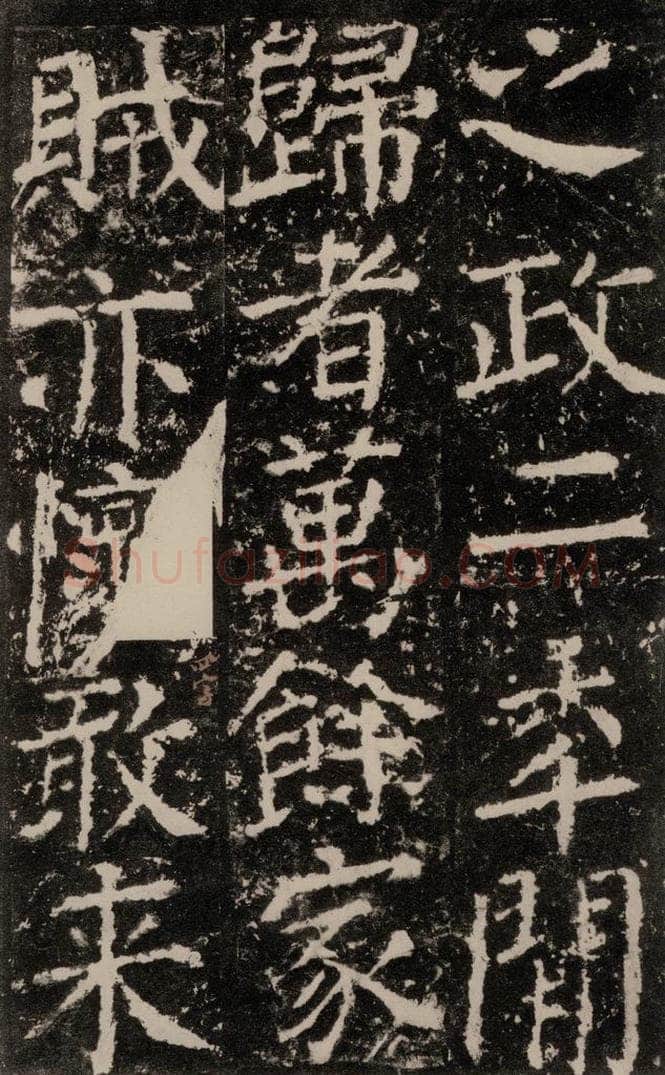 之政二秊閒
歸者萬餘家
賊亦懷敢来
Shufaziliao.COM